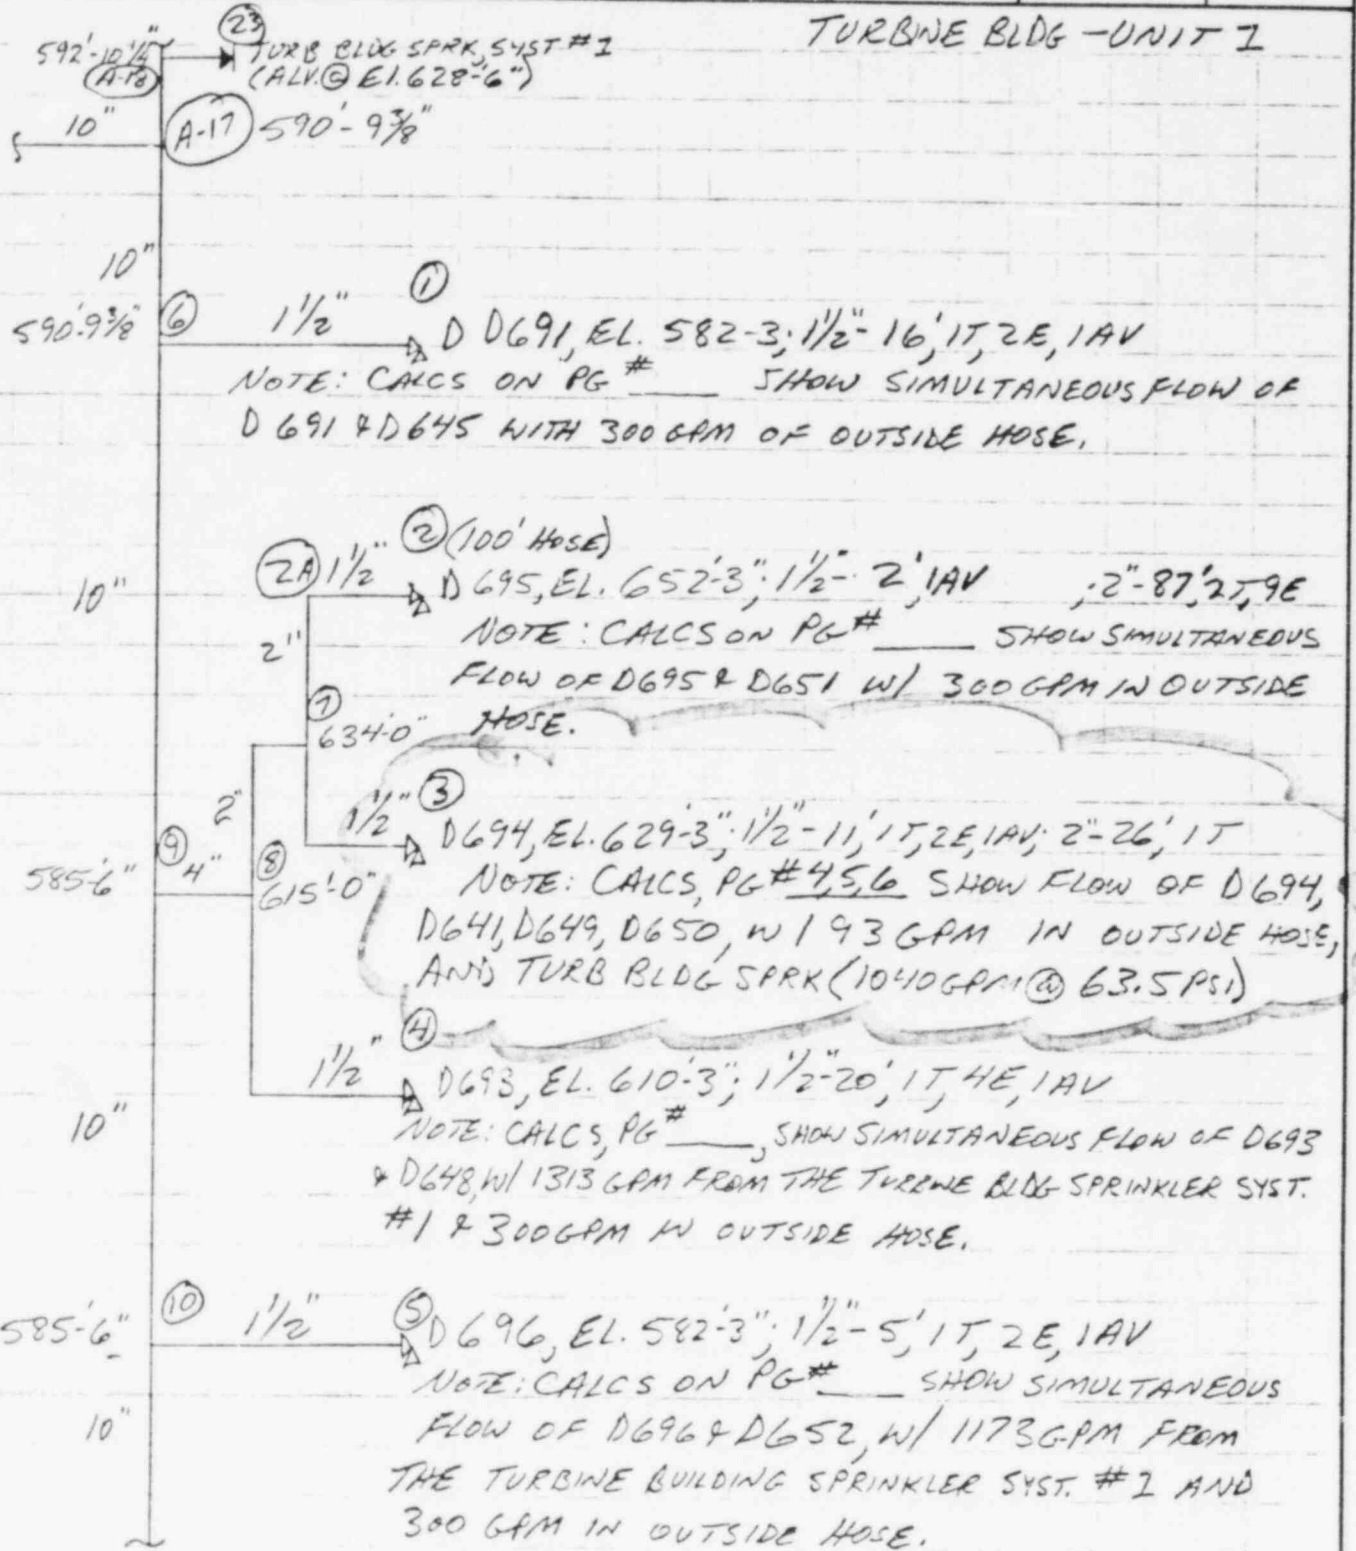 TURBINE BLDG - UNIT 1
23
592'-10 1/4"
TURB BLDG SPRK, SYST #1
A-18
(ALV. @ El. 628'-6")
10"
A-17 590'-9 3/8"
10"
1
590'-9 3/8" 6 1 1/2"
D D691, EL. 582-3; 1 1/2"-16', 1T, 2E, 1AV
NOTE: CALCS ON PG # ___ SHOW SIMULTANEOUS FLOW OF
D 691 & D645 WITH 300 GPM OF OUTSIDE HOSE.
2 (100' HOSE)
2A 1 1/2"
10"
D 695, EL. 652'-3"; 1 1/2"- 2', 1AV ; 2"-87', 2T, 9E
NOTE: CALCS ON PG # ___ SHOW SIMULTANEOUS
2"
FLOW OF D695 & D651 W/ 300 GPM IN OUTSIDE
7
634'-0" HOSE.
3
2" 1 1/2"
D694, EL. 629'-3"; 1 1/2"-11', 1T, 2E, 1AV; 2"-26', 1T
585'-6" 9 4" 8
615'-0"
NOTE: CALCS, PG #4,5,6 SHOW FLOW OF D694,
D641, D649, D650, W/ 93 GPM IN OUTSIDE HOSE,
AND TURB BLDG SPRK (1040 GPM @ 63.5 PSI)
4
1 1/2"
D693, EL. 610'-3"; 1 1/2"-20', 1T, 4E, 1AV
10"
NOTE: CALCS, PG # ___, SHOW SIMULTANEOUS FLOW OF D693
& D648, W/ 1313 GPM FROM THE TURBINE BLDG SPRINKLER SYST.
#1 & 300 GPM IN OUTSIDE HOSE.
585-6" 10 1 1/2" 5
D 696, EL. 582'-3"; 1 1/2"-5', 1T, 2E, 1AV
NOTE: CALCS ON PG # ___ SHOW SIMULTANEOUS
10"
FLOW OF D696 & D652, W/ 1173 GPM FROM
THE TURBINE BUILDING SPRINKLER SYST. #1 AND
300 GPM IN OUTSIDE HOSE.